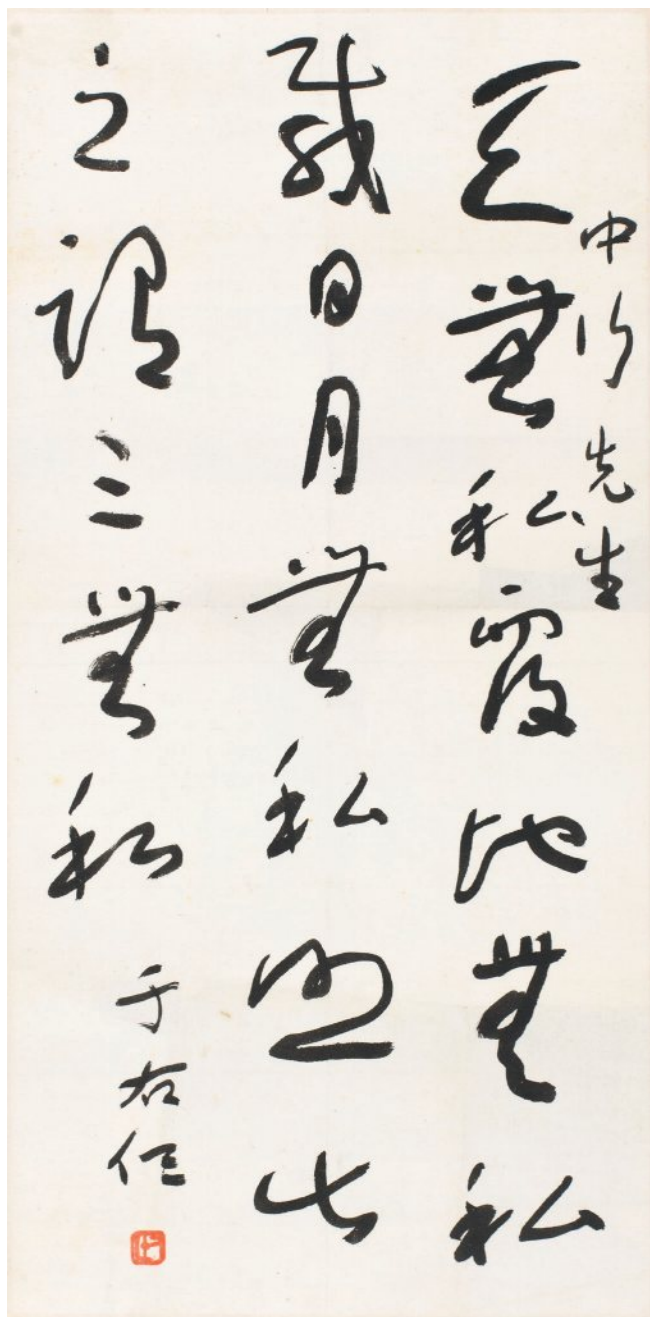 中行先生
天無私覆地無私
載日月無私照此
之謂三無私
于右任